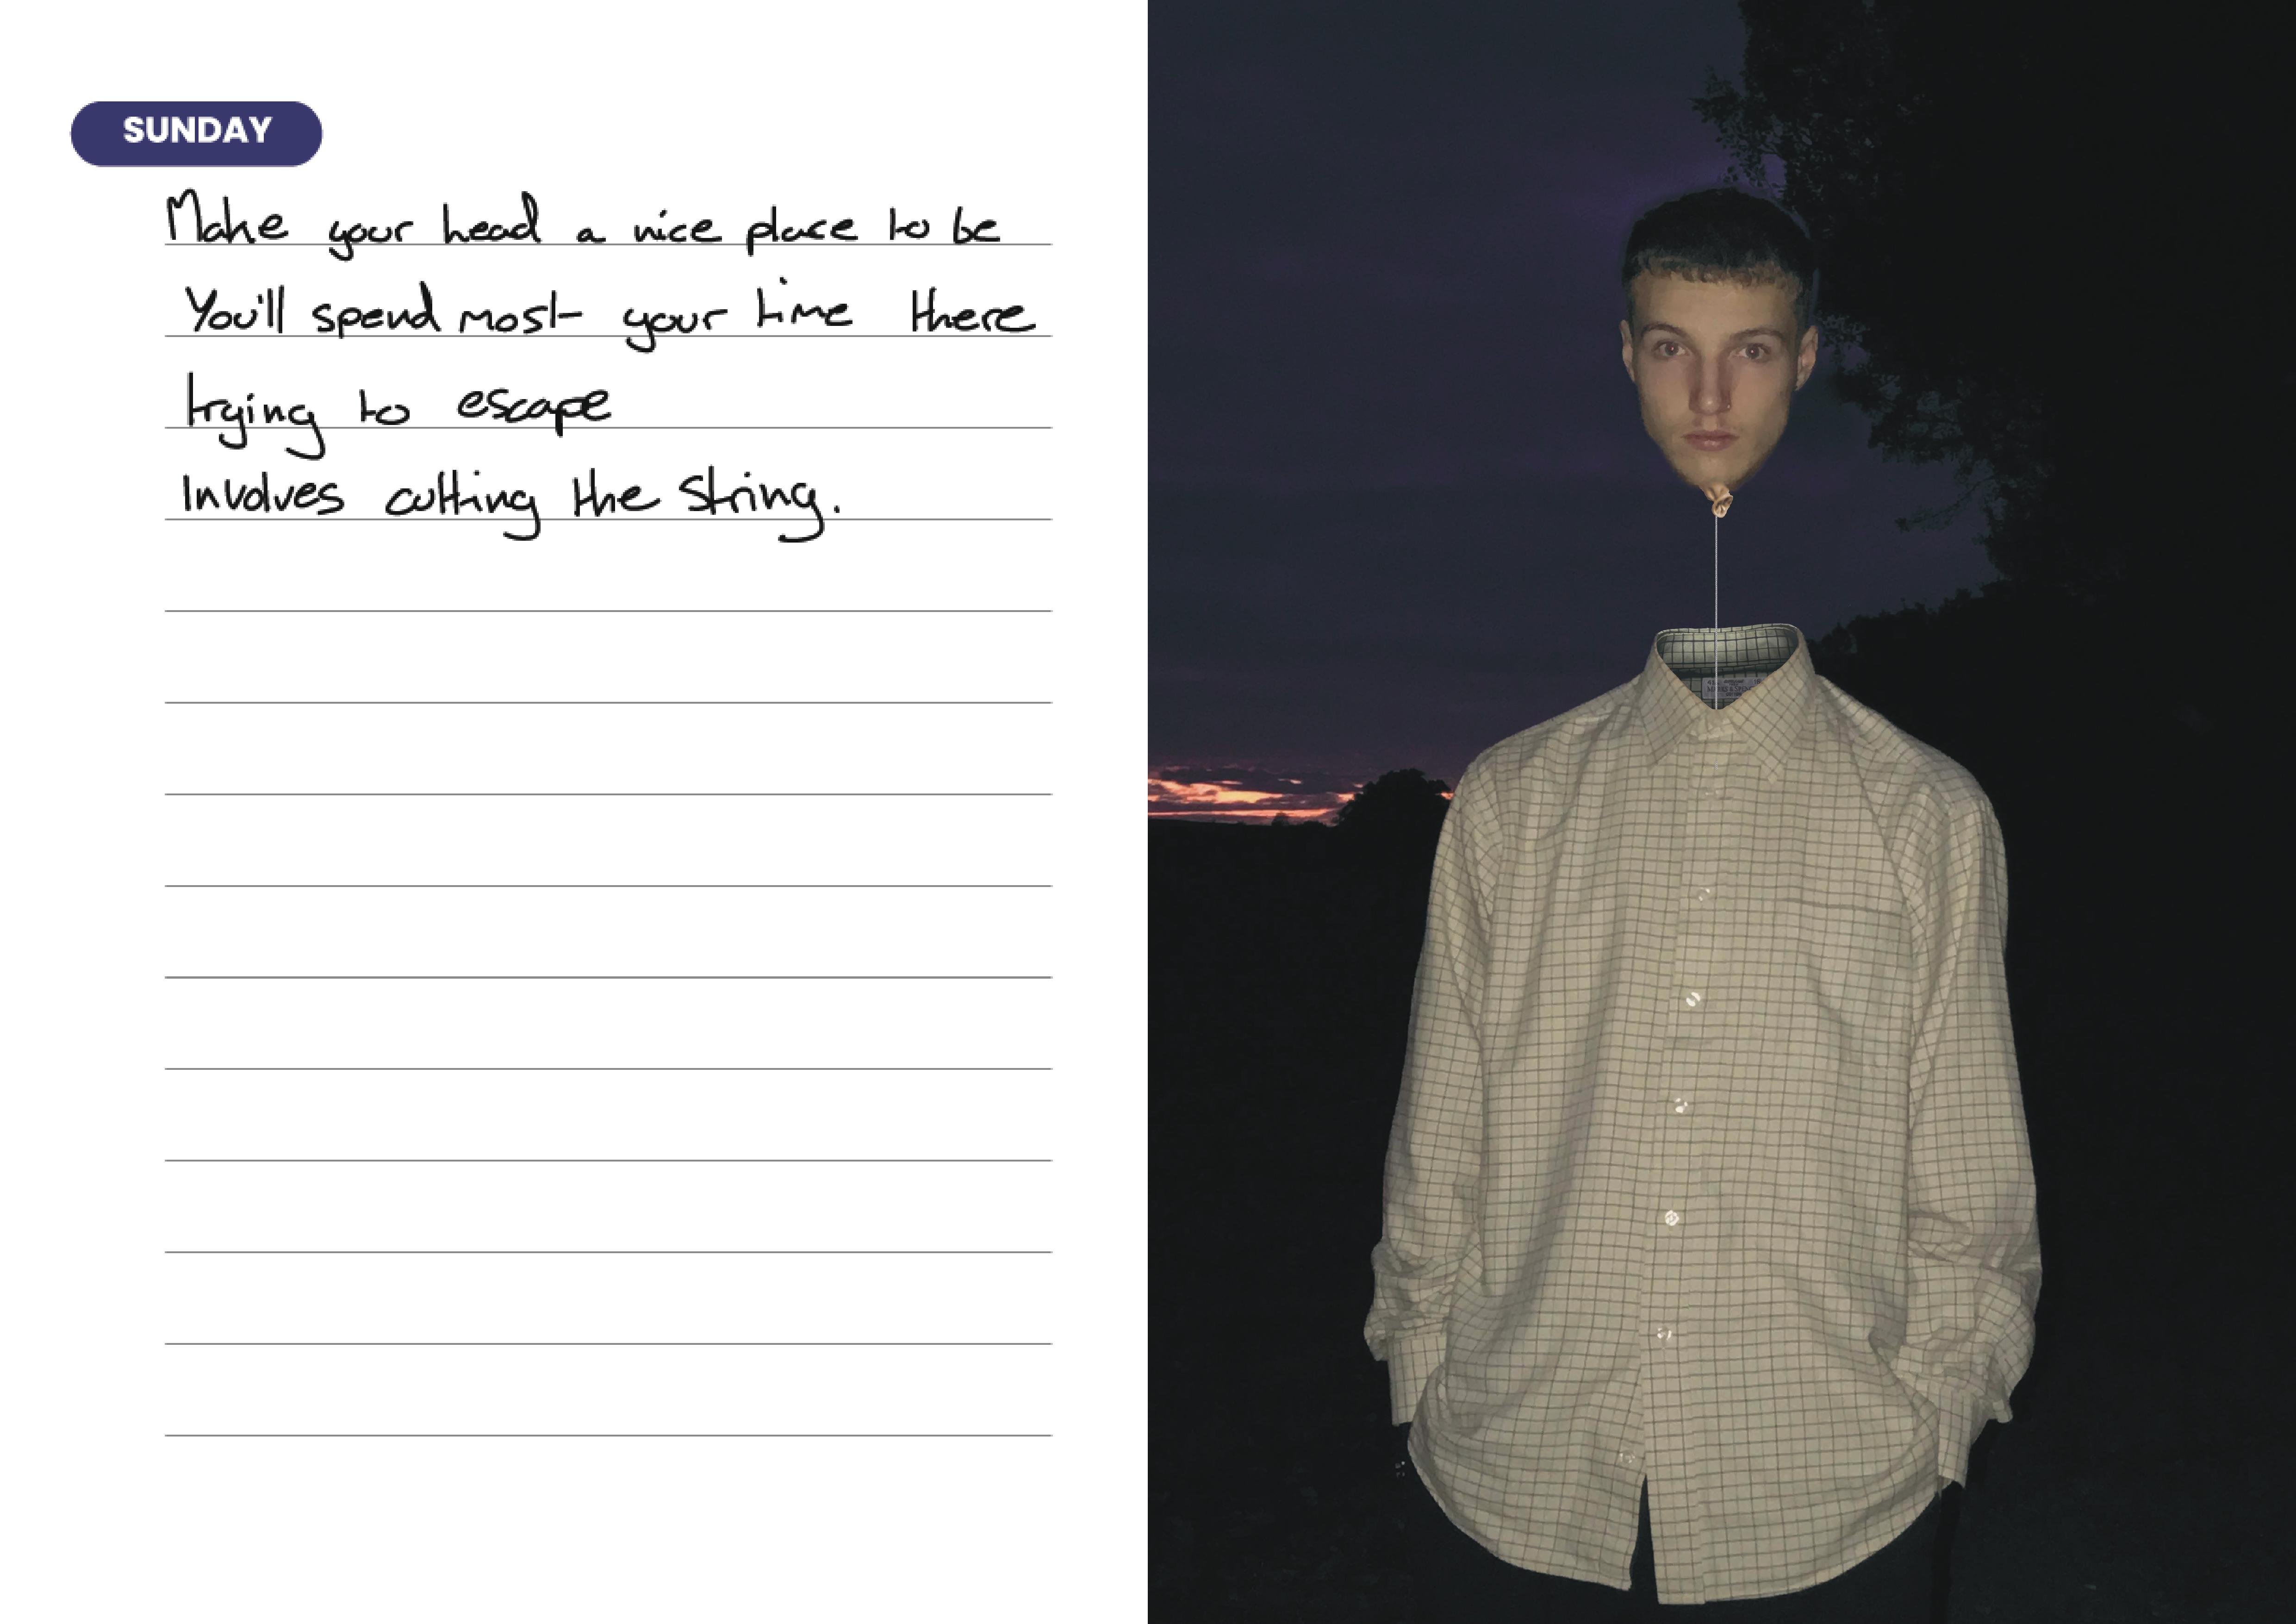 SUNDAY
Make your head a nice place to be
You'll spend most your time there
trying to escape
Involves cutting the string.